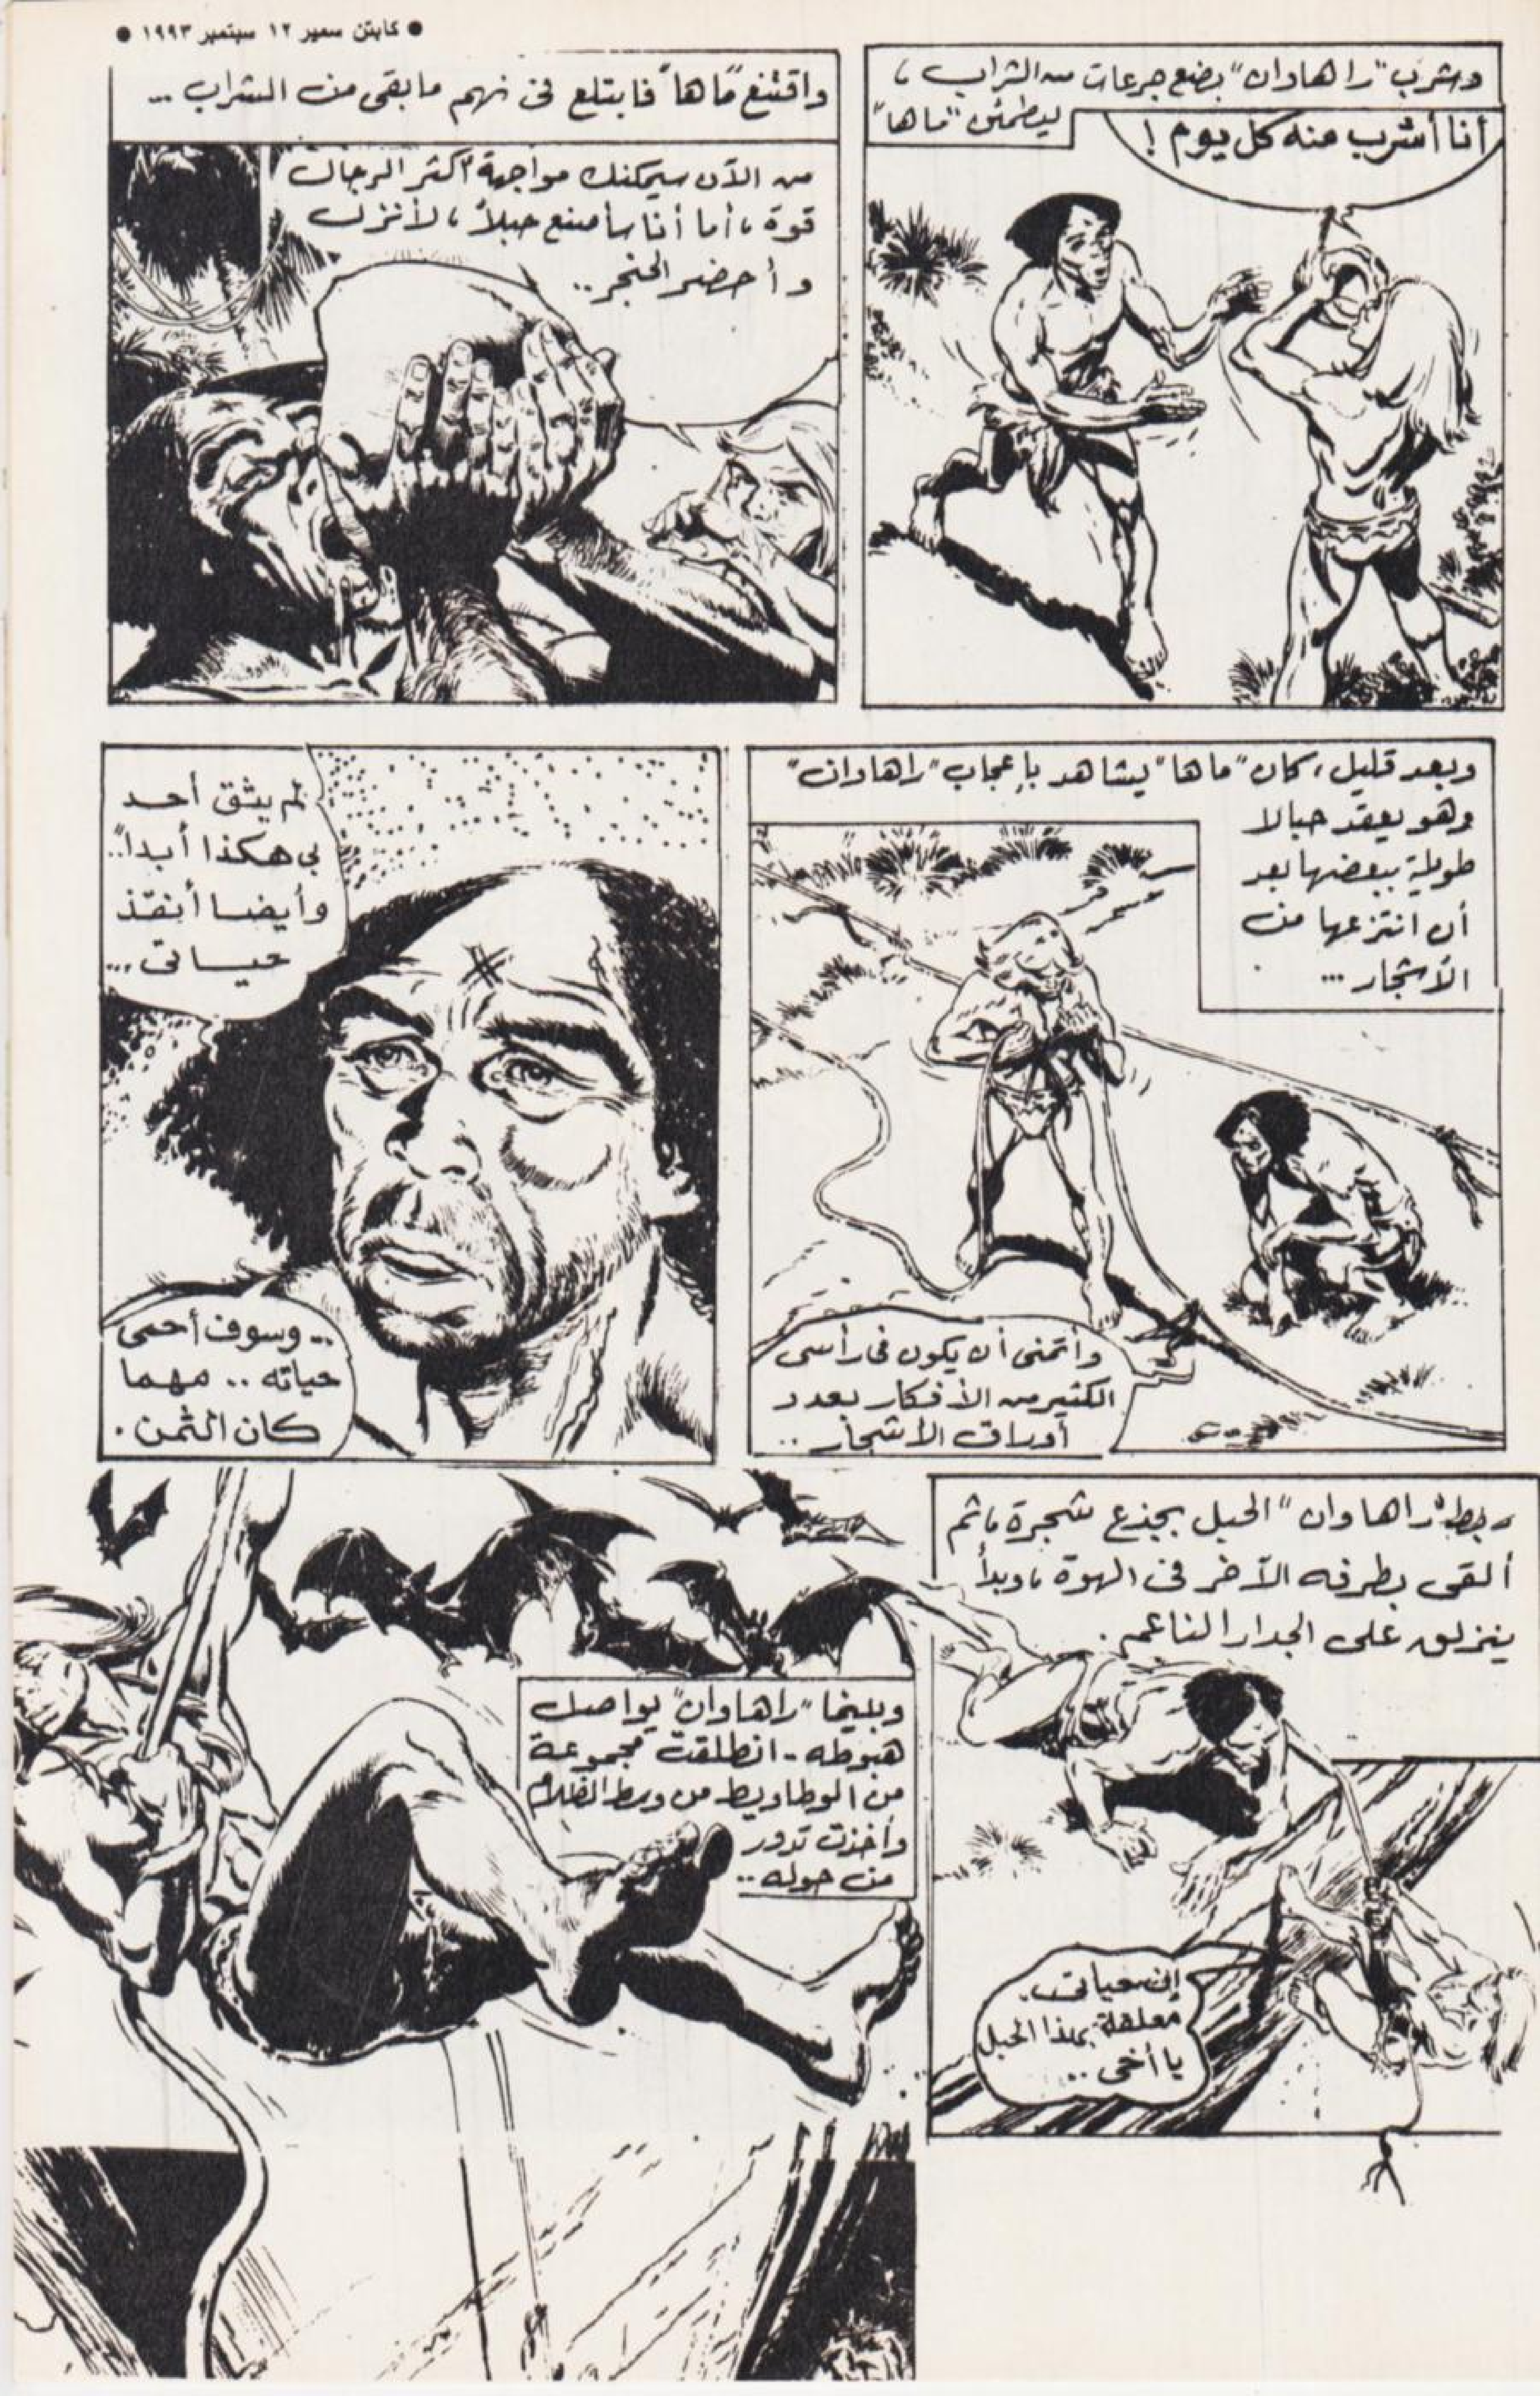 ● كابتن سمير ١٢ سبتمبر ١٩٩٣ ●
وشرب "راهاوان" بضع جرعات من الشراب ،
ليطمئن "ماها"
أنا أشرب منه كل يوم !
واقتنع "ماها" فابتلع فى نهم مابقى من الشراب ..
من الآن سيمكنك مواجهة أكثر الرجال
قوة ، أما أنا سأصنع حبلاً ، لأنزل
وأحضر الخنجر ..
وبعد قليل ، كان "ماها" يشاهد بإعجاب "راهاوان"
وهو يعقد حبالا
طويلة ببعضها بعد
أن انتزعها من
الأشجار ...
وأتمنى أن يكون فى رأسى
الكثير من الأفكار بعدد
أوراق الأشجار ..
لم يثق أحد
بى هكذا أبداً ..
وأيضا أنقذ
حياتى ...
.. وسوف أحمى
حياته .. مهما
كان الثمن .
ربط "راهاوان" الحبل بجذع شجرة ، ثم
ألقى بطرفه الآخر فى الهوة ، وبدأ
ينزلق على الجدار الناعم .
إن حياتى
معلقة بهذا الحبل
يا أخى ..
وبينما "راهاوان" يواصل
هبوطه - انطلقت مجموعة
من الوطاويط من وسط الظلام
وأخذت تدور
من حوله ..